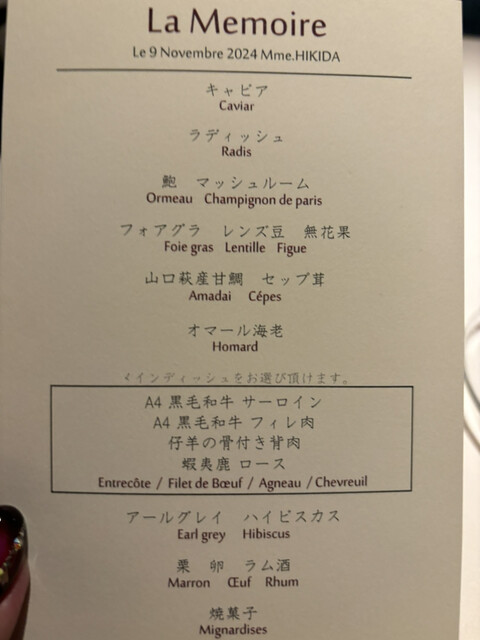 La Memoire
Le 9 Novembre 2024 Mme.HIKIDA
キャビア
Caviar
ラディッシュ
Radis
鮑　マッシュルーム
Ormeau　Champignon de paris
フォアグラ　レンズ豆　無花果
Foie gras　Lentille　Figue
山口萩産甘鯛　セップ茸
Amadai　Cépes
オマール海老
Homard
メインディッシュをお選び頂けます。
A4 黒毛和牛 サーロイン
A4 黒毛和牛 フィレ肉
仔羊の骨付き背肉
蝦夷鹿 ロース
Entrecôte / Filet de Bœuf / Agneau / Chevreuil
アールグレイ　ハイビスカス
Earl grey　Hibiscus
栗　卵　ラム酒
Marron　Œuf　Rhum
焼菓子
Mignardises